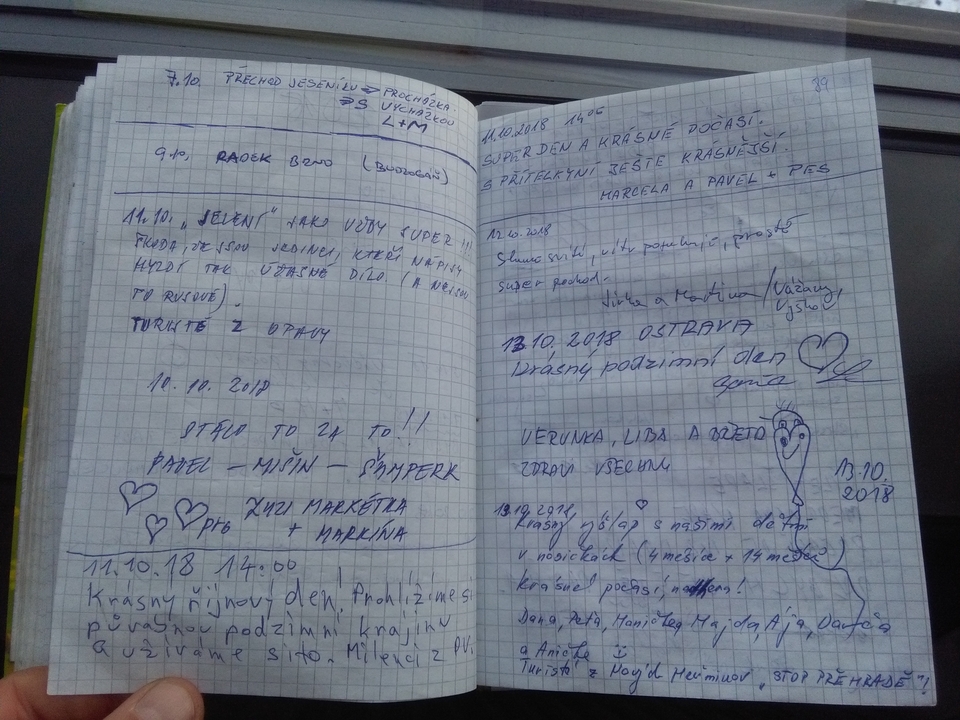 7.10. PŘECHOD JESENÍKU => PROCHÁZKA
=> S VYCHÁZKOU
L+M
9.10. RADEK BRNO
11.10. „JELENÍ" JAKO VŽDY SUPER !!!
ŠKODA, ŽE JSOU JEDINCI, KTEŘÍ NÁPISY
HYZDÍ TAK ÚŽASNÉ DÍLO. (A NEJSOU
TO RUSOVÉ).
TURISTÉ Z OPAVY
10.10. 2018
STÁLO TO ZA TO!!
PAVEL – MIŠIN – ŠUMPERK
pro ZUZI MARKÉTKA
+ MARKÍNA
11.10.18 14:00
Krásný říjnový den. Prohlížíme si
půvabnou podzimní krajinu
a užíváme si to. Milenci z
39
11.10.2018 14 05
SUPER DEN A KRÁSNÉ POČASÍ.
S PŘÍTELKYNÍ JEŠTĚ KRÁSNĚJŠÍ.
MARCELA A PAVEL + PES
12.10.2018
Slunce svítí, vítr pofukuje, prostě
super pochod.
Jirka a Martina / Vážany,
Vyškov
13.10. 2018 OSTRAVA
Krásný podzimní den
VERUNKA, LIBA A
ZDRAVÍ VŠECHNY
13.10.
2018
13.10.2018
Krásný výšlap s našimi dětmi
v nosičkách (4 měsíce + 14 měsíců)
Krásné počasí, nádhera!
Dana, Péťa, Monička, Majda, Ája,
a Anička
Turisté z Nových Heřminov „STOP PŘEHRADĚ"!